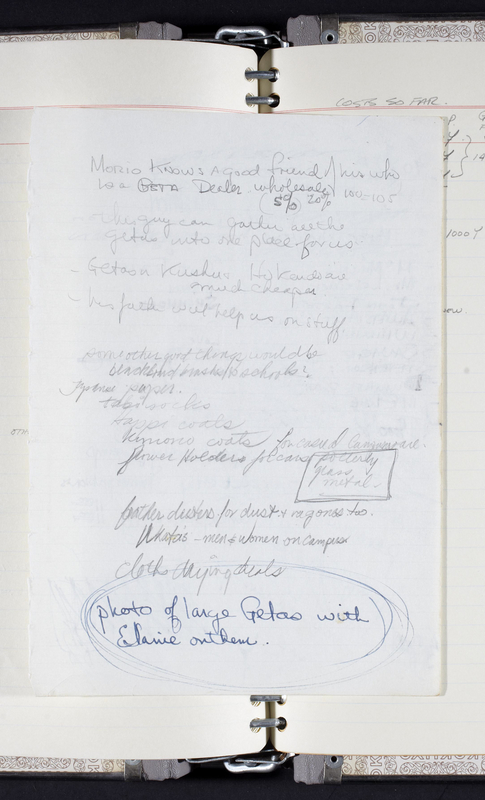 COSTS SO FAR.
MORIO KNOWS A good friend of his who
is a GETA Dealer. wholesaler
(5% 20%
other guy can gather all the
getas into one place for us.
- Getas on Kushu + Hokendo are
much cheaper.
- his father will help us on stuff
some other good things would be
blackboard erasers for schools?
Japanese paper.
tabi socks
Happi coats
Kimono coats for casual
flower Holders for cars pottery
glass
metal.
feather dusters for dust + rag ones too.
- men & women on campus
cloth drying
photo of large Getas with
Elaine on them.
1000.